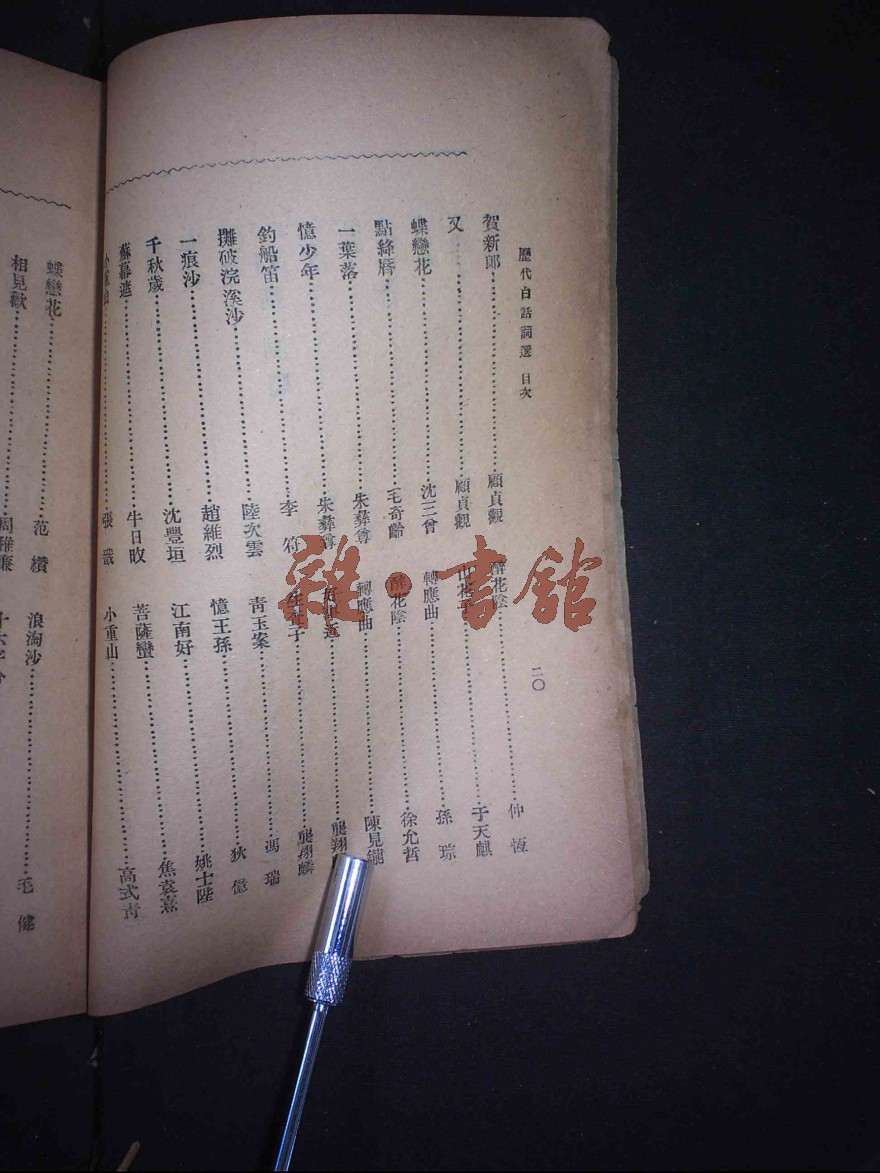 歷代白話詞選 目次
二〇
賀新郎 顧貞觀
又 顧貞觀
蝶戀花 沈三曾
點絳脣 毛奇齡
一葉落 朱彝尊
憶少年 朱彝尊
釣船笛 李符
攤破浣溪沙 陸次雲
一痕沙 趙維烈
千秋歲 沈豐垣
蘇幕遮 牛日
小重山 張
醉花陰 仲恆
山花子 于天麒
轉應曲 孫琮
醉花陰 徐允哲
轉應曲 陳見鑨
近 龔翔
子 龔翔麟
青玉案 馮瑞
憶王孫 狄億
江南好 姚士陛
菩薩蠻 焦袁熹
小重山 高式青
蝶戀花 范纘
相見歡 周稚廉
浪淘沙 毛健
十六字令
雜·書館